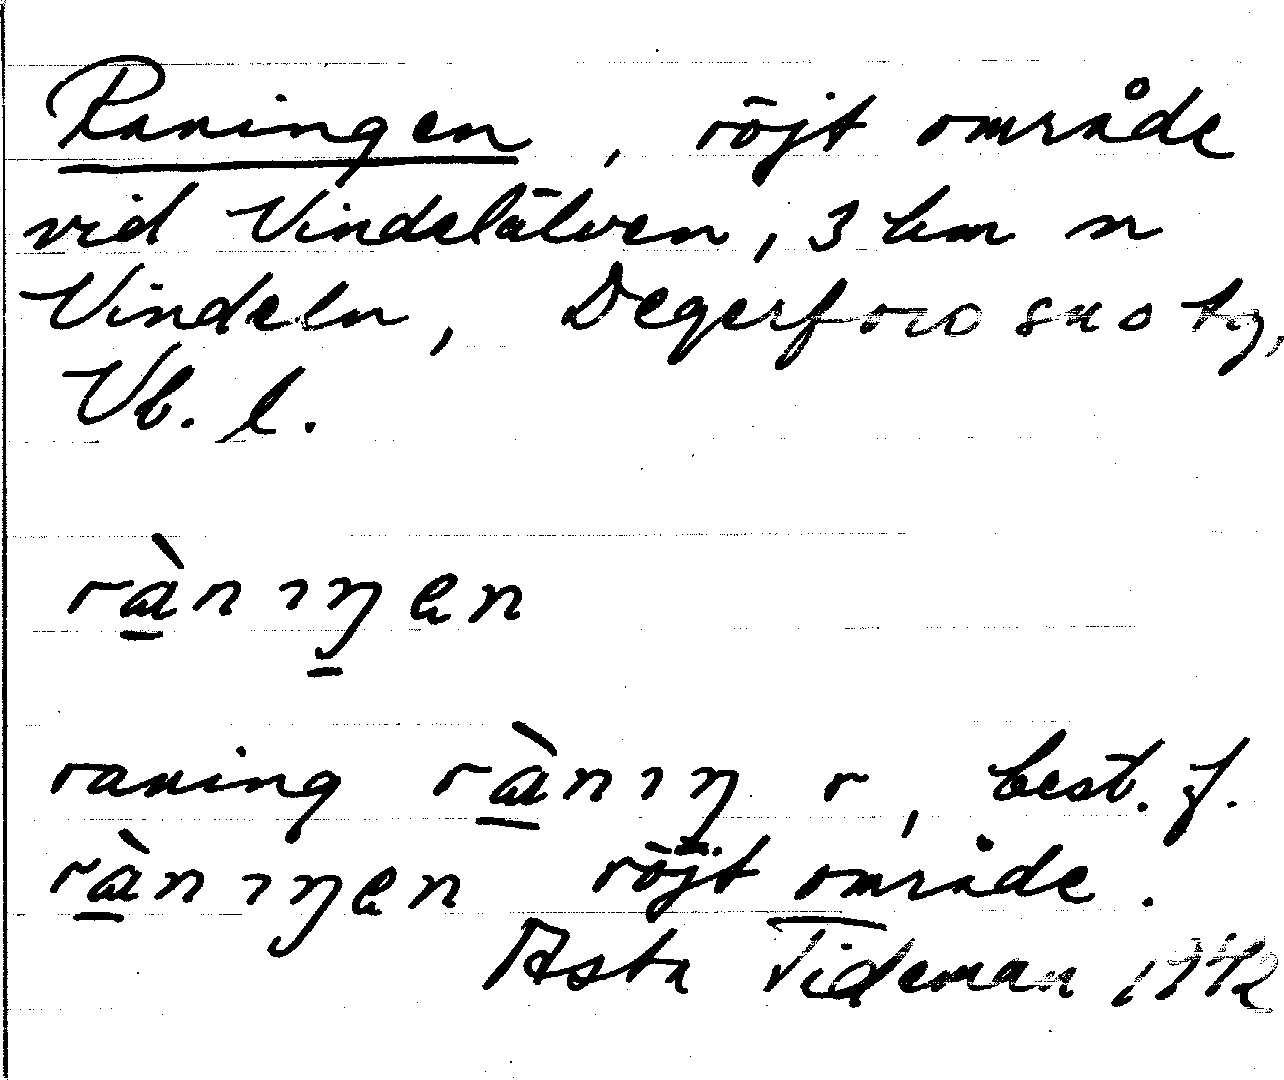 Raningen, röjt område
vid Vindelälven, 3 km n
Vindeln, Degerfors sn o tg,
Vb. l.
rànıŋen
raning rànıŋ r, best. f.
rànıŋen röjt område.
Asta Tideman